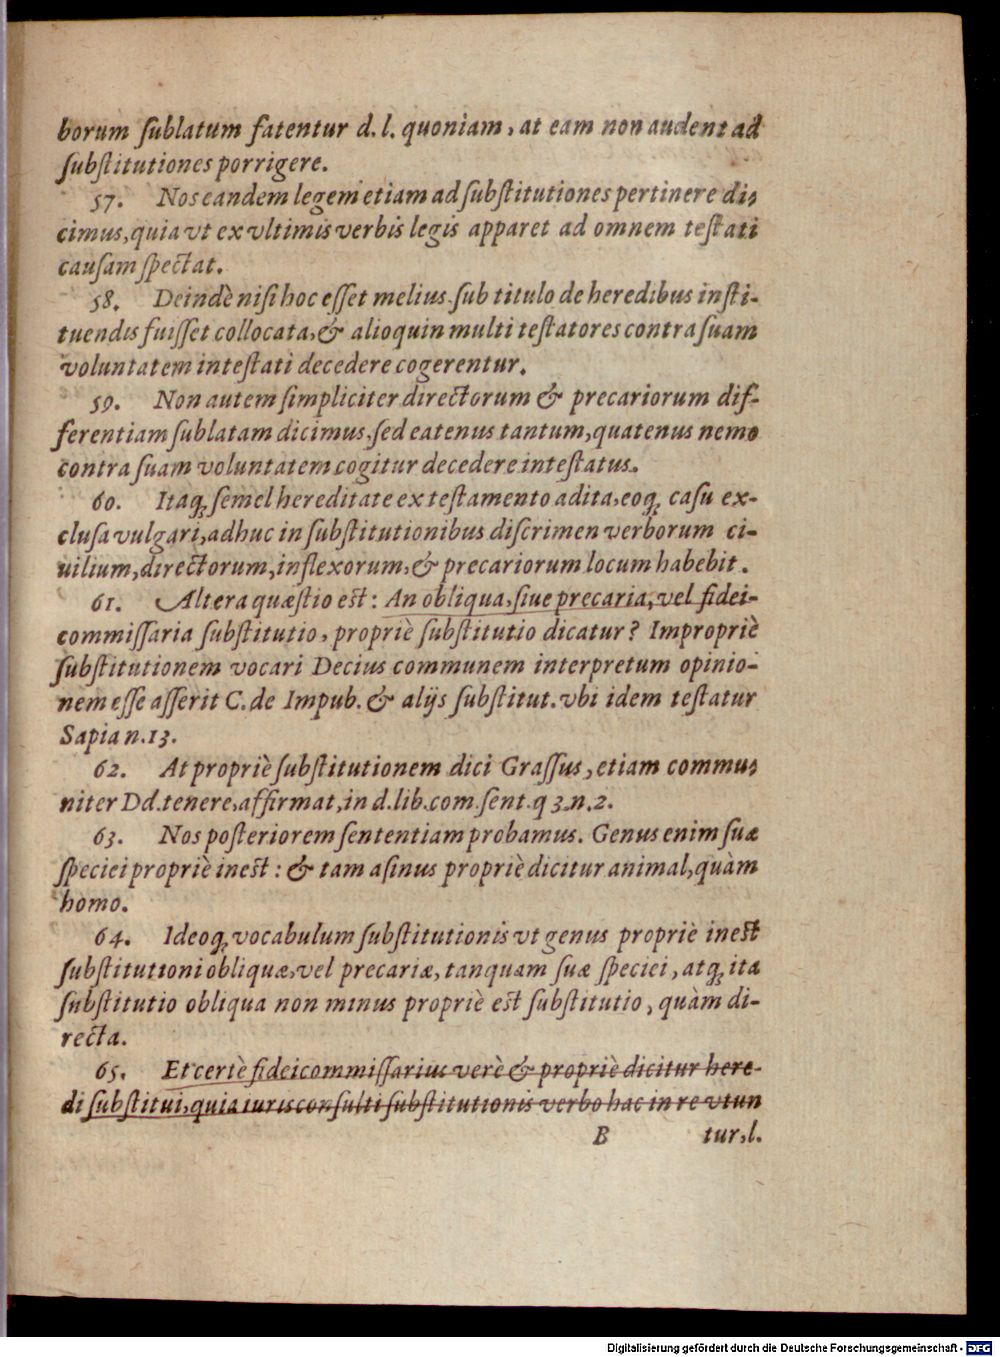 borum ſublatum fatentur d. l. quoniam, at eam non audent ad
ſubſtitutiones porrigere.
57. Nos eandem legem etiam ad ſubſtitutiones pertinere di-
cimus, quia vt ex vltimis verbis legis apparet ad omnem teſtati
cauſam ſpectat.
58. Deindè niſi hoc eſſet melius ſub titulo de heredibus inſti-
tuendis fuiſſet collocata, & alioquin multi teſtatores contra ſuam
voluntatem inteſtati decedere cogerentur.
59. Non autem ſimpliciter directorum & precariorum dif-
ferentiam ſublatam dicimus, ſed eatenus tantum, quatenus nemo
contra ſuam voluntatem cogitur decedere inteſtatus.
60. Itaq; ſemel hereditate ex teſtamento adita, eoq; caſu ex-
cluſa vulgari, adhuc in ſubſtitutionibus diſcrimen verborum ci-
uilium, directorum, inflexorum, & precariorum locum habebit.
61. Altera quæſtio eſt: An obliqua, ſiue precaria, vel fidei-
commiſſaria ſubſtitutio, propriè ſubſtitutio dicatur? Impropriè
ſubſtitutionem vocari Decius communem interpretum opinio-
nem eſſe aſſerit C. de Impub. & alijs ſubſtitut. vbi idem teſtatur
Sapia n. 13.
62. At propriè ſubſtitutionem dici Graſſus, etiam commu-
niter Dd. tenere, affirmat, in d. lib. com. ſent. q 3. n. 2.
63. Nos poſteriorem ſententiam probamus. Genus enim ſuæ
ſpeciei propriè ineſt: & tam aſinus propriè dicitur animal, quàm
homo.
64. Ideoq; vocabulum ſubſtitutionis vt genus propriè ineſt
ſubſtitutioni obliquæ, vel precariæ, tanquam ſuæ ſpeciei, atq; ita
ſubſtitutio obliqua non minus propriè eſt ſubſtitutio, quàm di-
recta.
65. Et certè fideicommiſſarius verè & propriè dicitur here-
di ſubſtitui, quia iurisconſulti ſubſtitutionis verbo hac in re vtun
B tur, l.
Digitalisierung gefördert durch die Deutsche Forschungsgemeinschaft - DFG